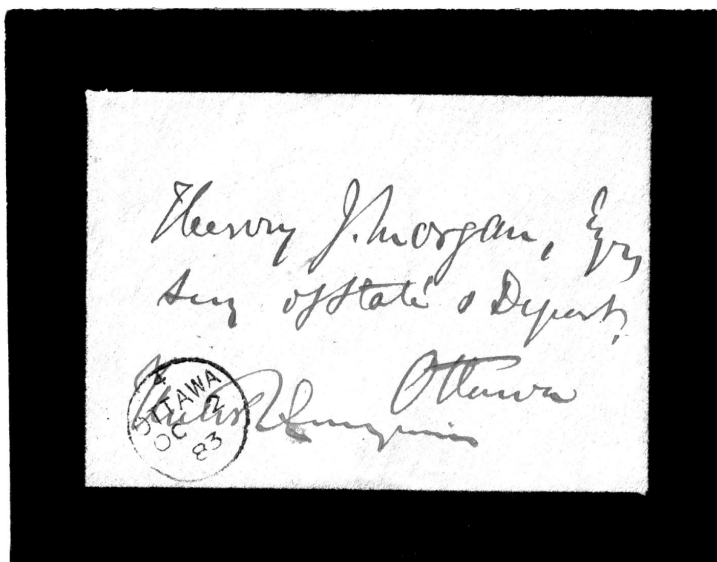 Henry J. Morgan, Esq
Secy of State's Depart.
Ottawa
4
OTTAWA
OC 2
83